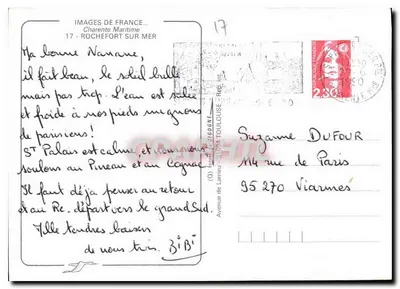 IMAGES DE FRANCE...
Charente Maritime
17 - ROCHEFORT SUR MER
17
Ma bonne Nanane,
il fait beau, le soleil brille
mais pas trop. L'eau est salée
et froide à nos pieds mignons
de parisiens!
St Palais est calme et nous nous
soulons au Pineau et au Cognac
Il faut déjà penser au retour
et au Re. départ vers le grand Sud.
Mille tendres baisers
de nous trois. BiBi
2,30
Suzanne DUFOUR
114 rue de Paris
95 270 Viarmes